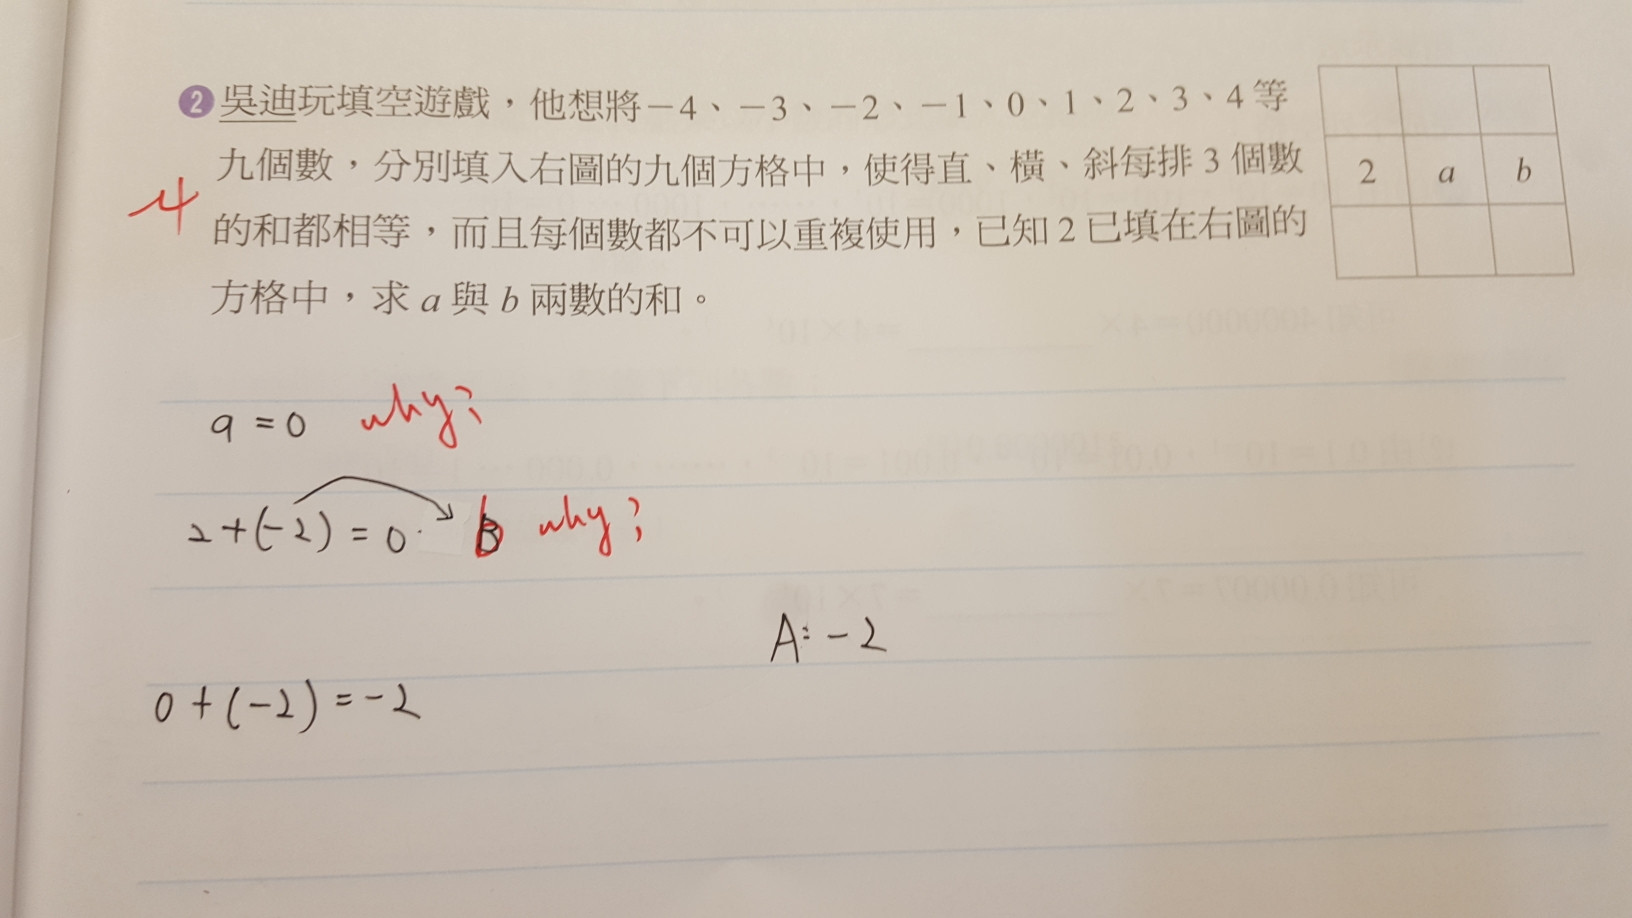 ❷吳迪玩填空遊戲，他想將－4、－3、－2、－1、0、1、2、3、4等
九個數，分別填入右圖的九個方格中，使得直、橫、斜每排3個數
的和都相等，而且每個數都不可以重複使用，已知2已填在右圖的
方格中，求a與b兩數的和。
2 a b
4
a = 0 why?
2+(-2) = 0 b why?
A: -2
0+(-2) = -2